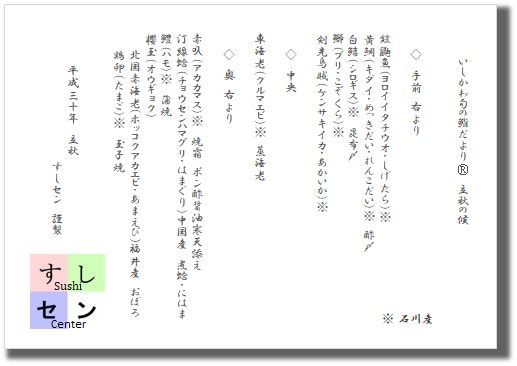 いしかわ旬の鮨だより® 立秋の候
◇ 手前 右より
鎧鼬魚(ヨロイイタチウオ・しげたら)※
黄鯛(キダイ・めっきだい・れんこだい)※ 酢〆
白鱚(シロギス)※ 昆布〆
鰤(ブリ・こぞくら)※
剣先烏賊(ケンサキイカ・あかいか)※
◇ 中央
車海老(クルマエビ)※ 蒸海老
◇ 奥 右より
赤魳(アカカマス)※ 焼霜 ポン酢醤油寒天添え
汀線蛤(チョウセンハマグリ・はまぐり)中国産 煮蛤・にはま
鱧(ハモ)※ 蒲焼
櫻玉(オウギョク)
北国赤海老(ホッコクアカエビ・あまえび)福井産 おぼろ
鶏卵(たまご)※ 玉子焼
平成三十年 立秋
すしセン 謹製
※ 石川産
すし
Sushi
セン
Center